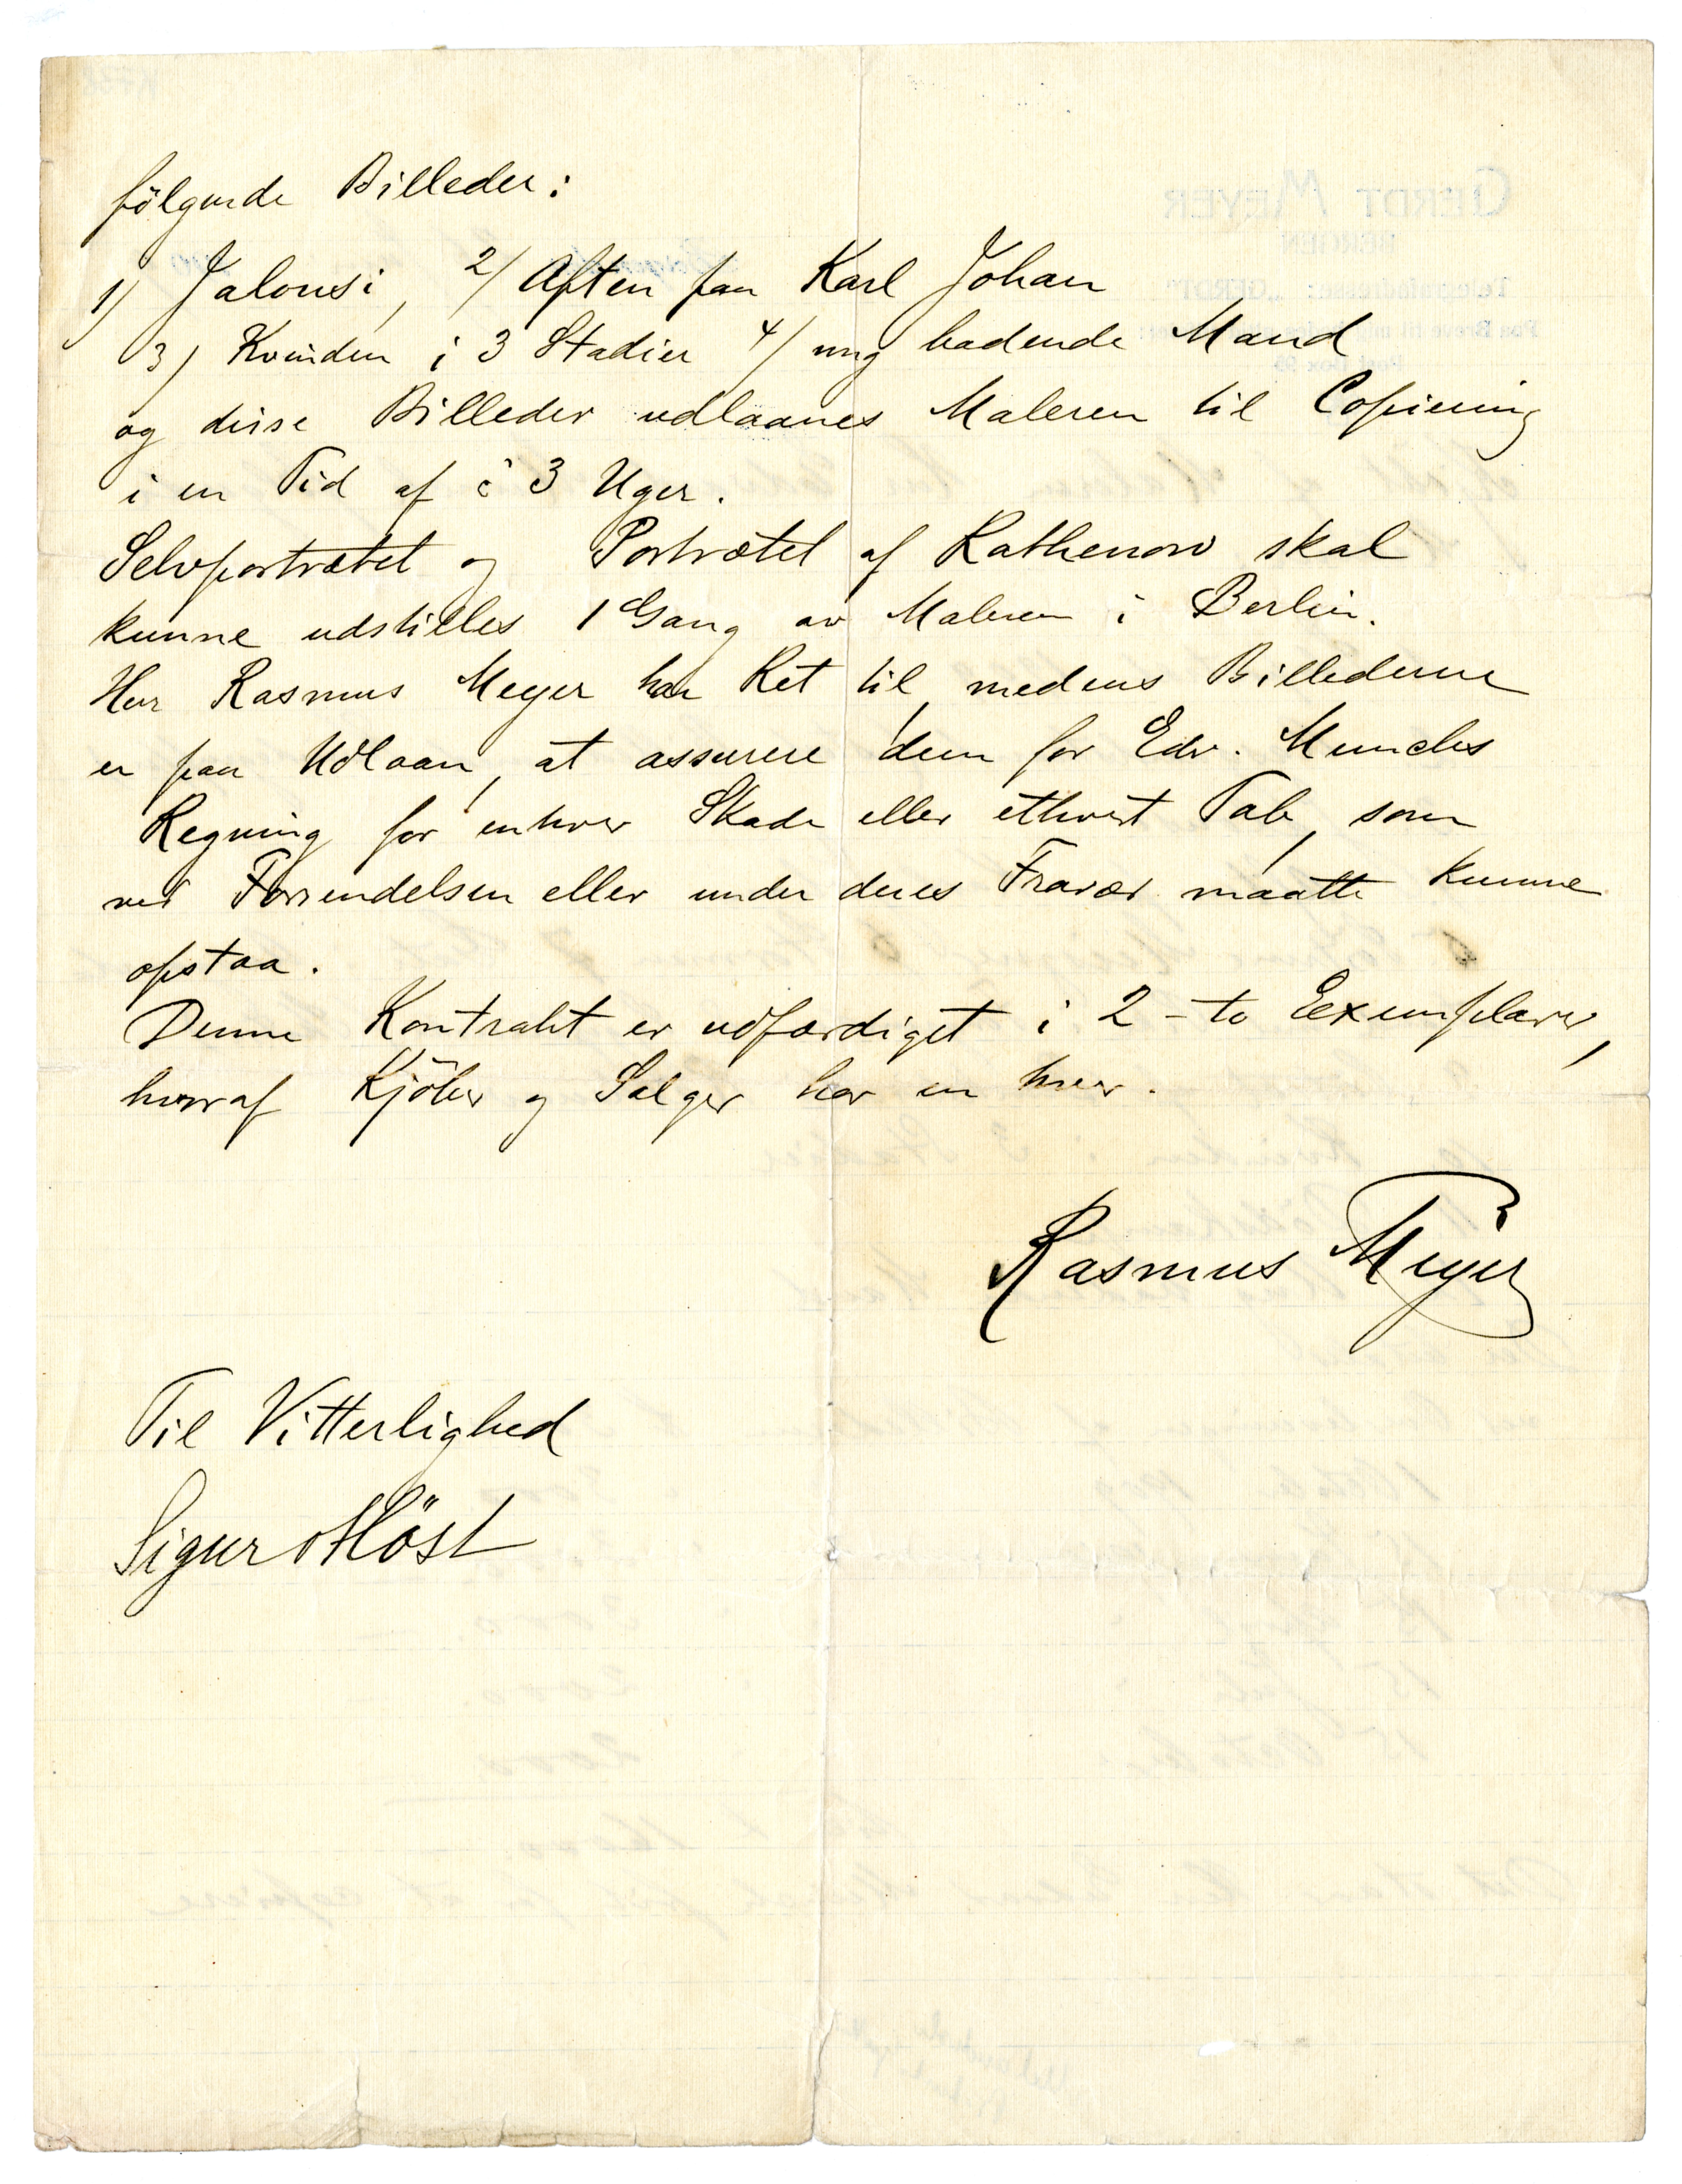 fölgende Billeder:
1) Jalousi, 2/ Aften paa Karl Johan
3) Kvinden i 3 Stadier 4/ ung badende Mand
og disse Billeder udlaanes Maleren til Copiering
i en Tid af 3 Uger.
Selvportrætet og Portrætet af Rathenow skal
kunne udstilles 1 Gang av Maleren i Berlin.
Herr Rasmus Meyer har Ret til, medens Billederne
er paa Udlaan, at assurere dem for Edv. Munchs
Regning for enhver Skade eller ethvert Tab, som
ved Forsendelsen eller under deres Fravær maatte kunne
opstaa.
Denne Kontrakt er udfærdiget i 2 - to Eexemplarer,
hvoraf Kjöber og Sælger har en hver.
Rasmus Meyer
Til Vitterlighed
Sigurd Höst
GERDT MEYER
BERGEN
Telegrafadresse: „GERDT"